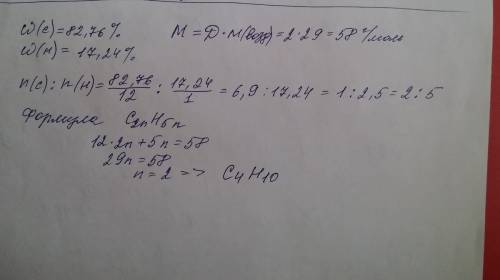 ω(c)=82,76% M = Д·M(возд)=2·29=58 г/моль
ω(н)= 17,24%
n(c):n(н)=82,76/12 : 17,24/1 = 6,9:17,24 = 1:2,5=2:5
Формула C2nH5n
12·2n+5n=58
29n=58
n=2 => C4H10